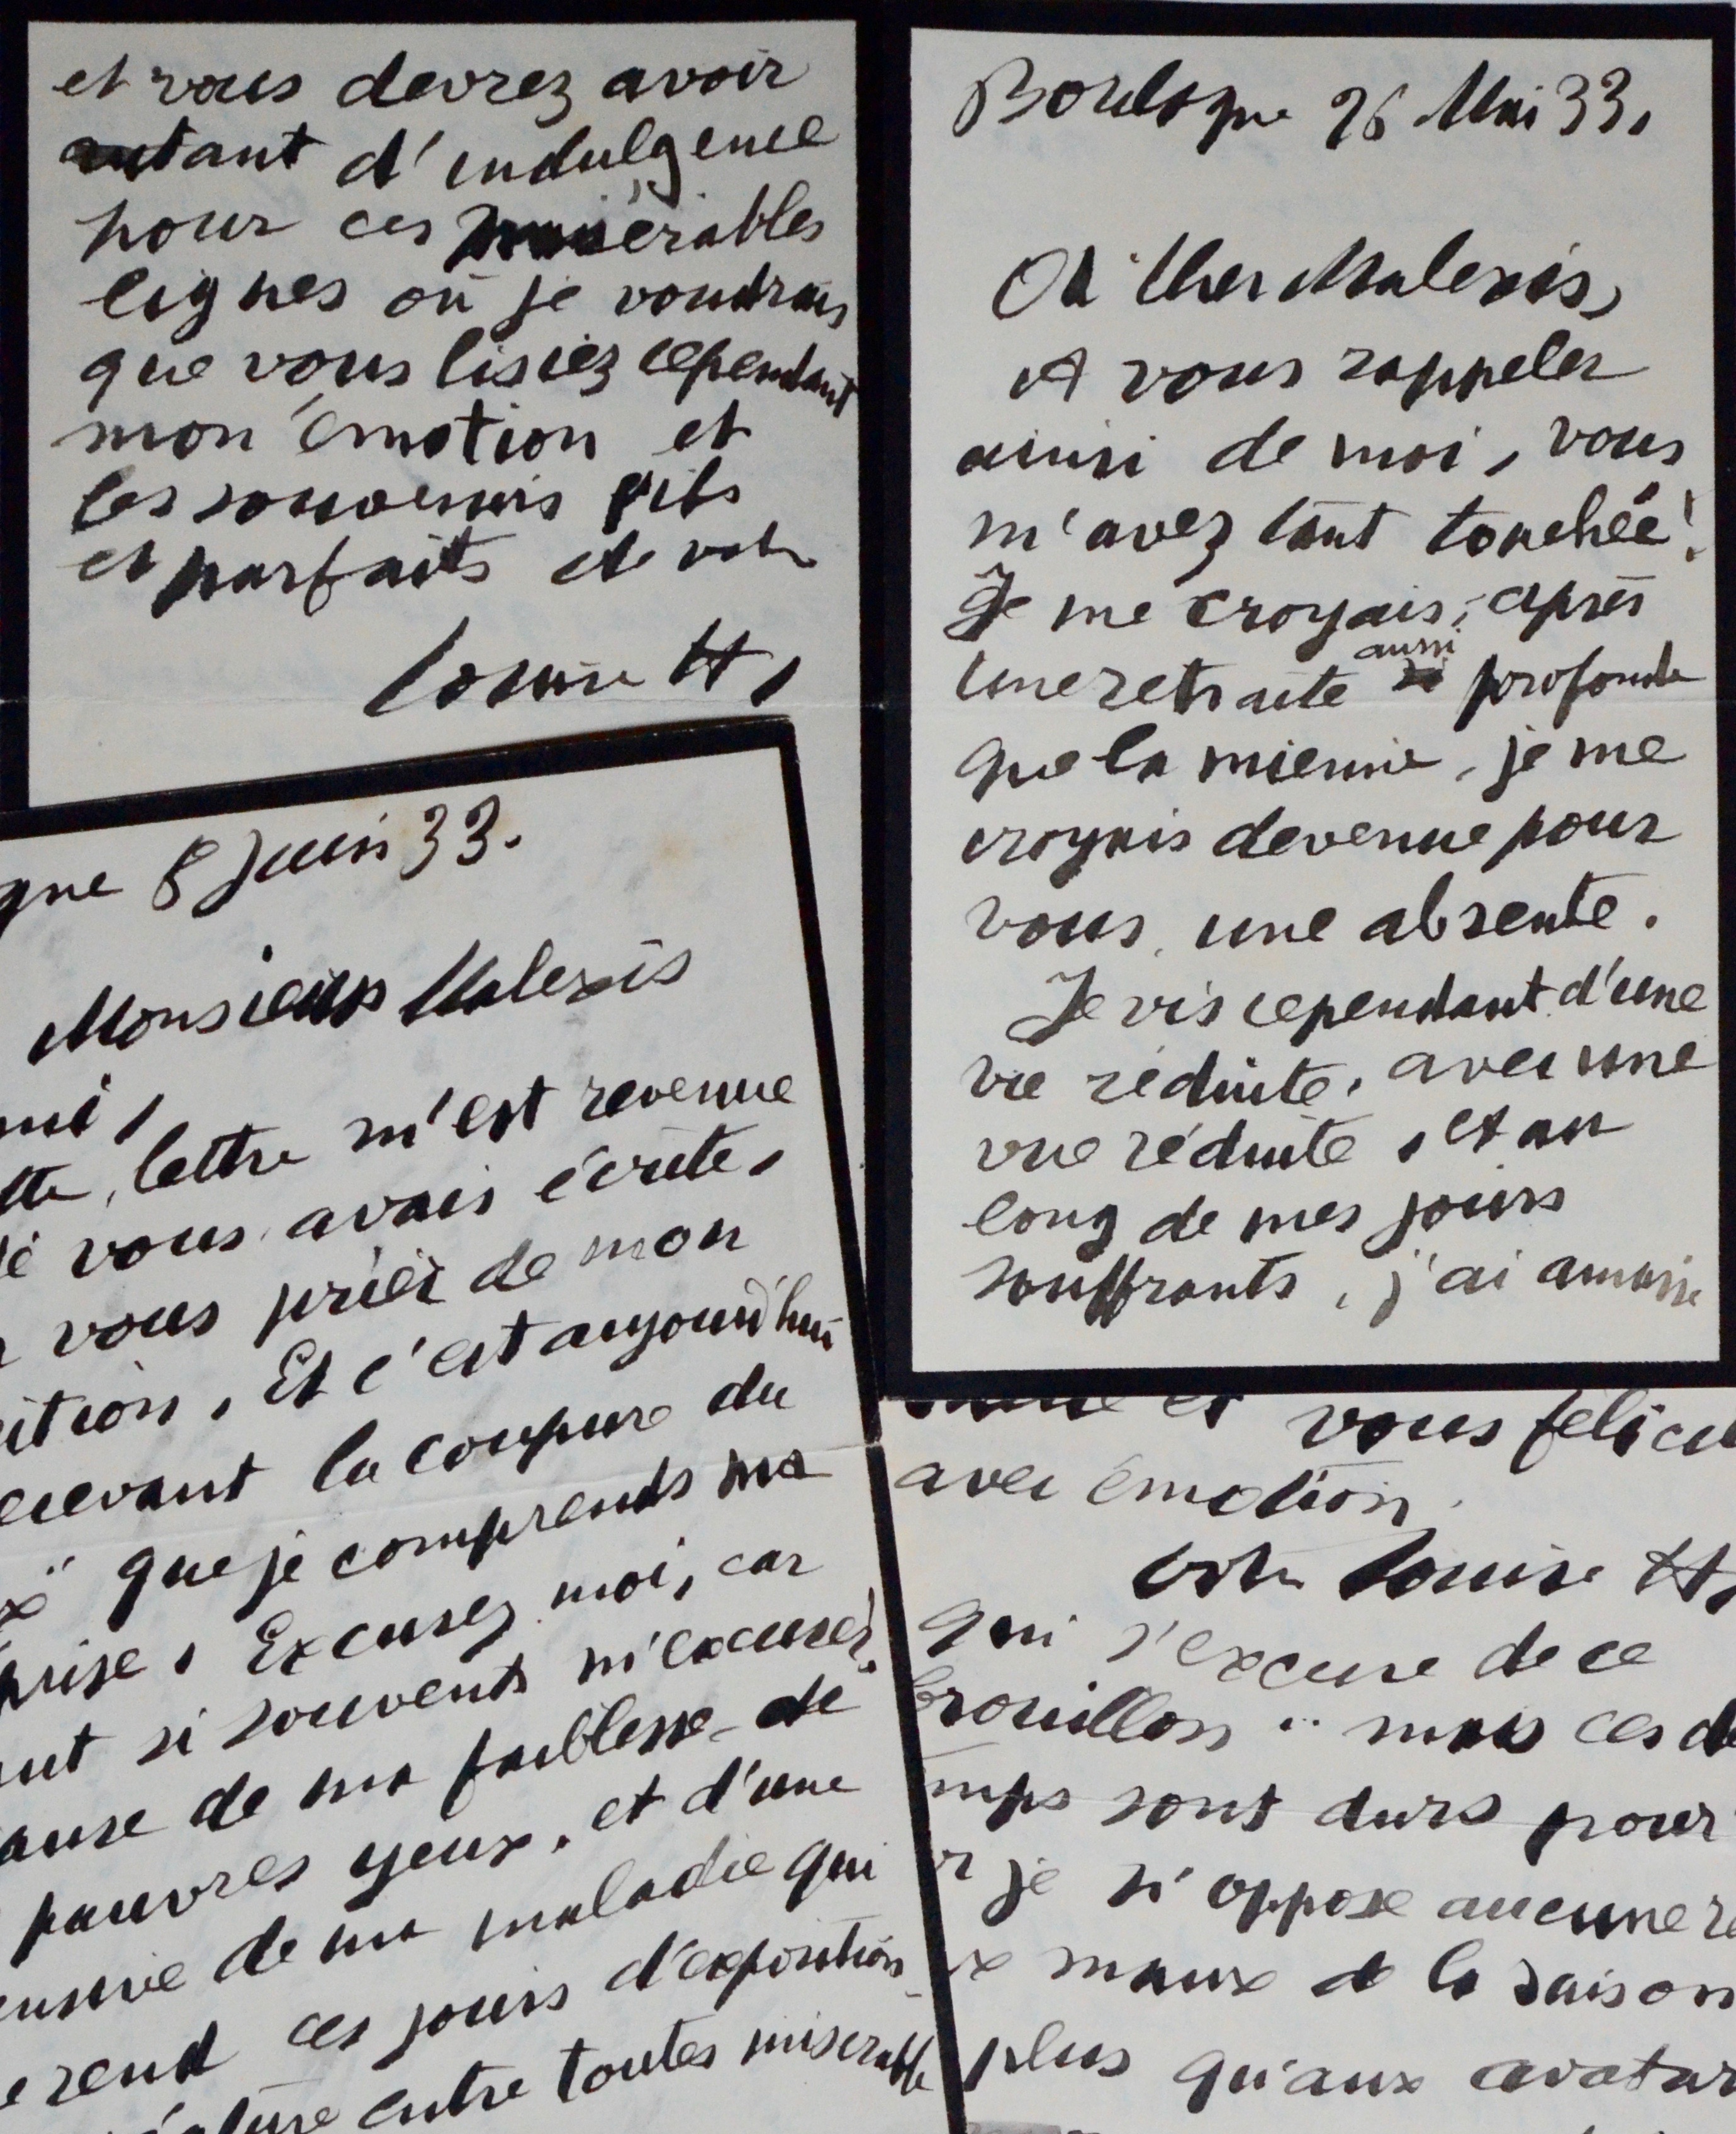 et vous devrez avoir
autant d'indulgence
pour ces misérables
lignes où je voudrais
que vous lisiez cependant
mon émotion et
les souvenirs
et parfaits de votre
Louise H.
Boulogne 26 Mai 33.
Oh cher Malexis,
A vous rappeler
ainsi de moi, vous
m'avez tant touchée!
Je me croyais, après
une retraite aussi profonde
que la mienne, je me
croyais devenue pour
vous, une absente.
Je vis cependant d'une
vie réduite, avec une
vue réduite, et au
long de mes jours
souffrants, j'ai amassé
gne 8 Juin 33.
Monsieur Malexis
mi,
tte lettre m'est revenue
e vous avais écrite,
vous prier de mon
ition. Et c'est aujourd'hui
ecevant la coupure du
que je comprends ma
prise. Excusez moi, car
ut si souvent m'excuser,
ause de ma faiblesse de
pauvres yeux, et d'une
de ma maladie qui
e rend ces jours d'exposition
ature entre toutes misérable
et vous félici
avec émotion.
votre Louise H.
qui s'excuse de ce
brouillon .. mais ces de
mps sont durs pour
je n'oppose aucune ré
x maux de la saison
plus qu'aux avatar